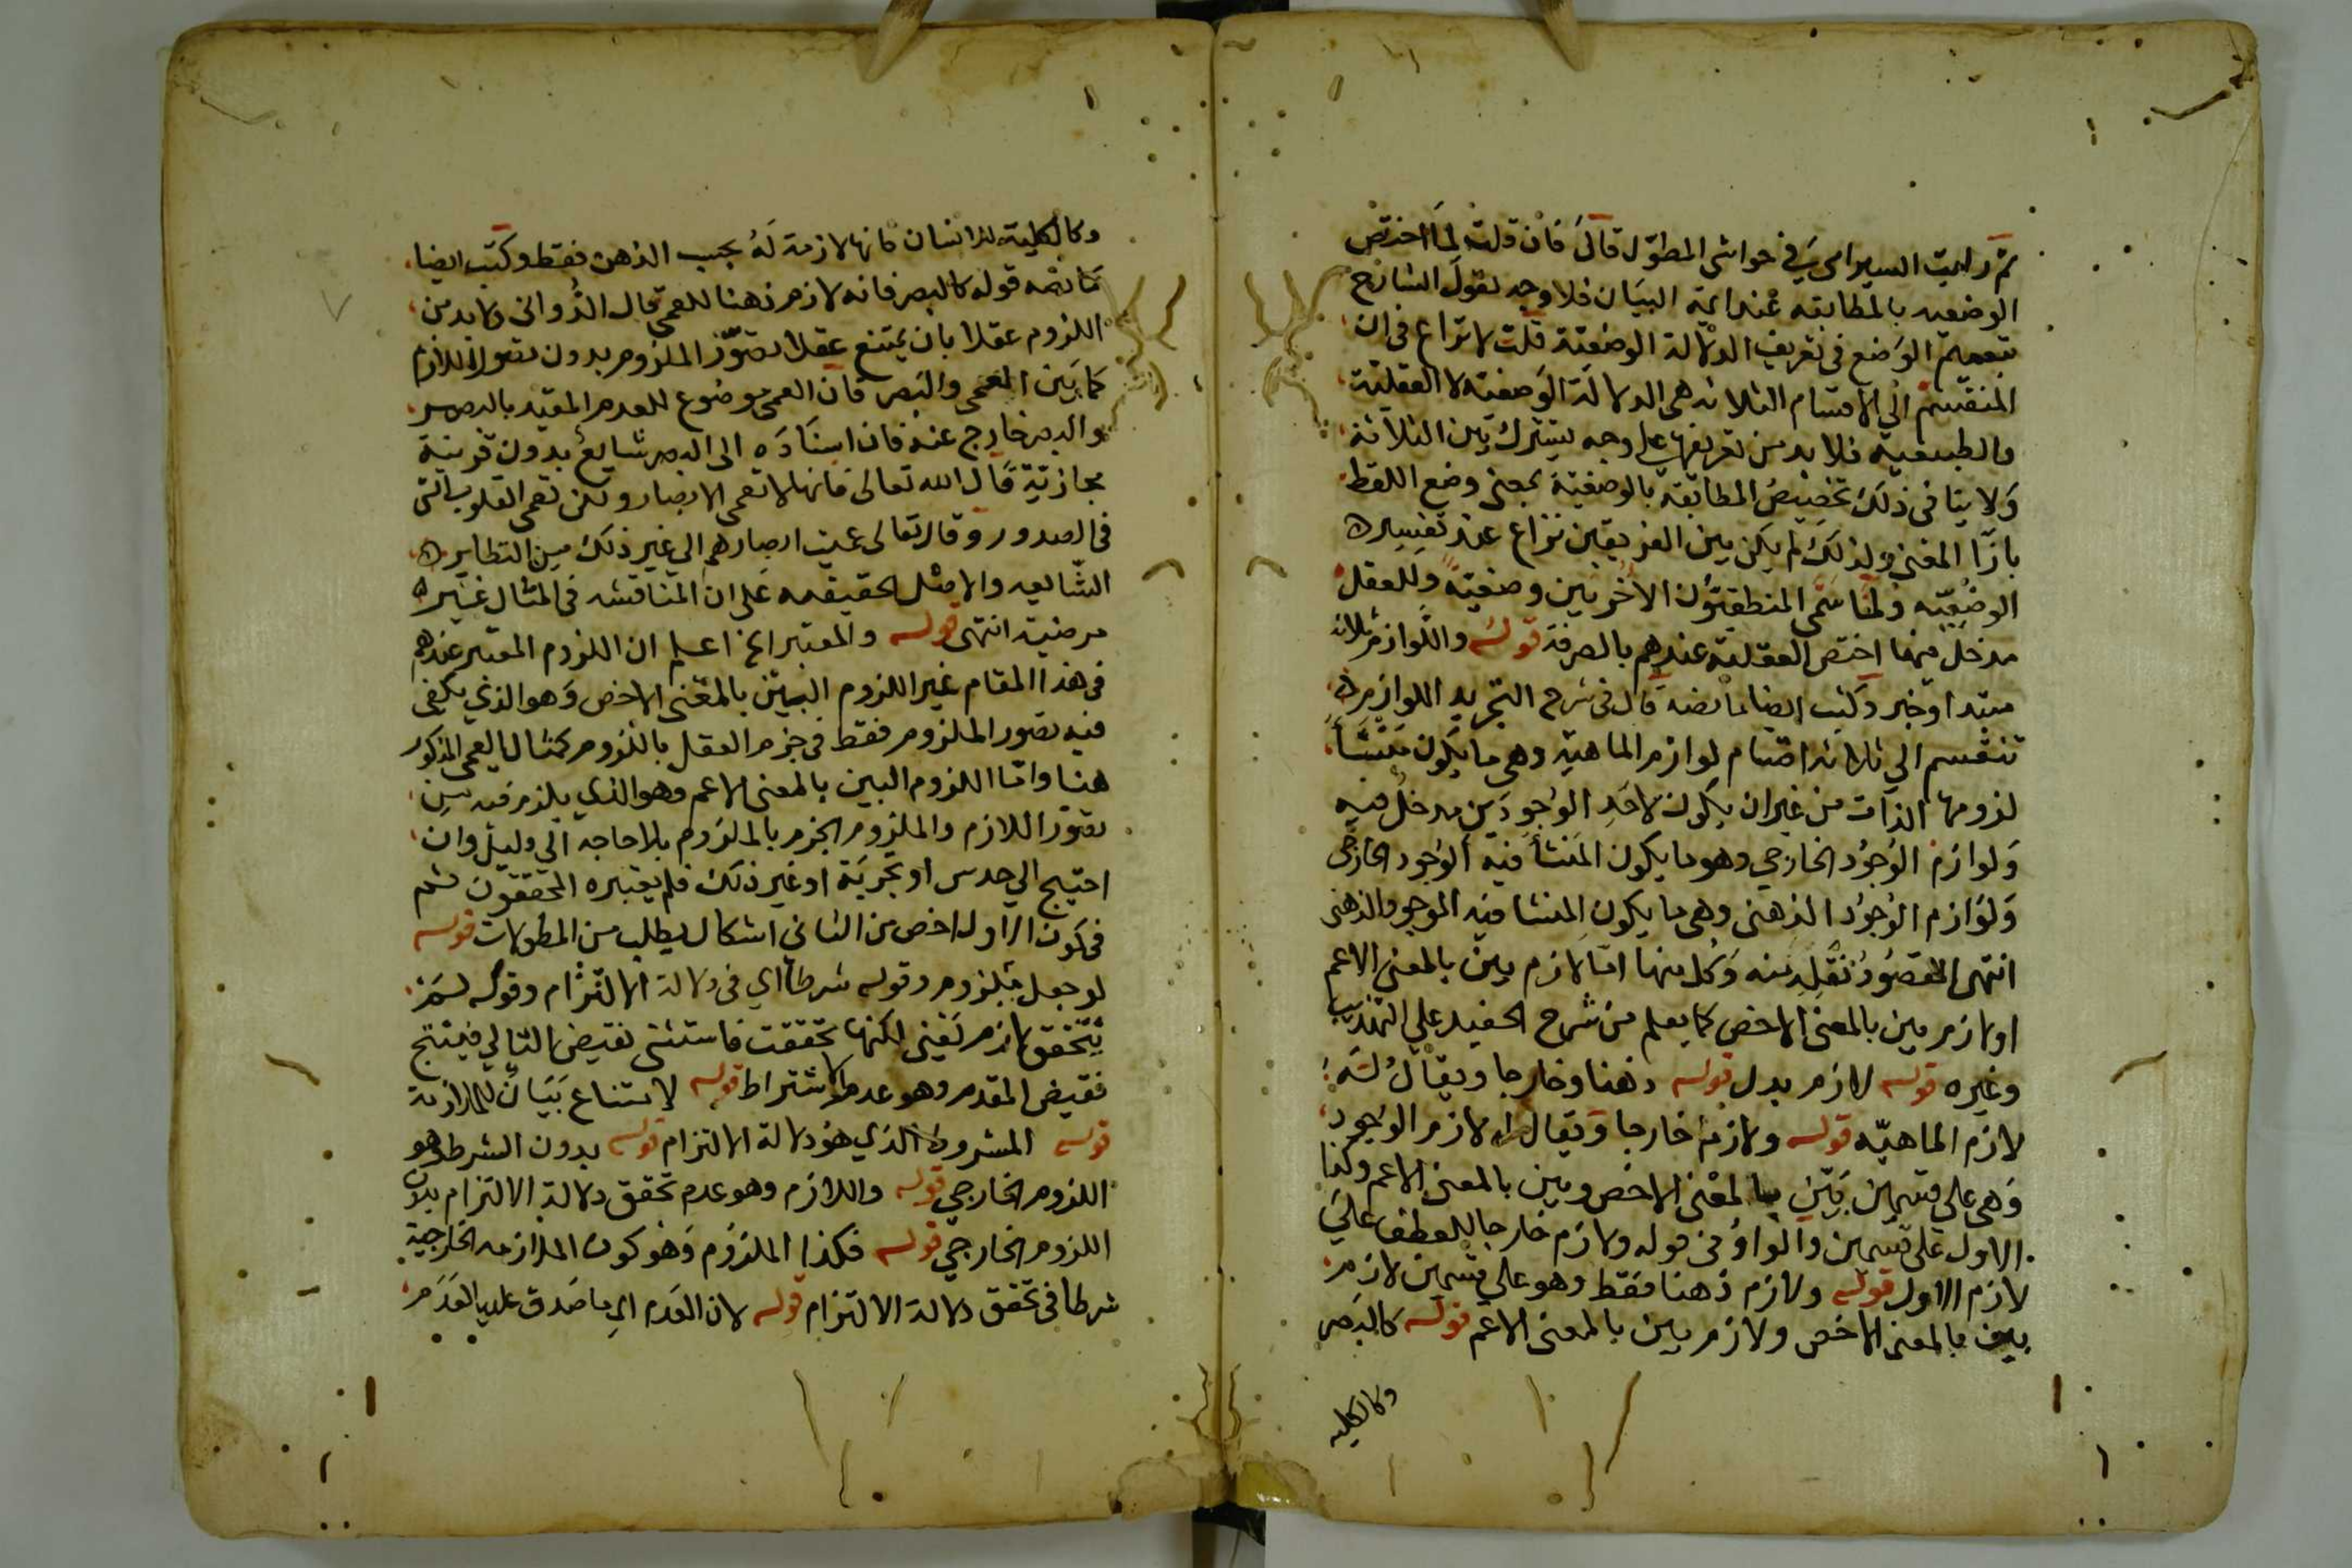 ثم رايت السيرامي في حواشي المطول قال فان قلت لما اختص
الوضعيه بالمطابقه عند ايمة البيان فلا وجه لقول الشارح
بتعميم الوضع في تعريف الدلالة الوضعية قلت لا نزاع في ان
المنقسم الي الاقسام الثلاثه هي الدلالة الوضعية لا العقلية
والطبيعية فلا بد من تعريفها علي وجه يشترك بين الثلاثة
ولا ينافي ذلك تخصيص المطابقة بالوضعية بمعني وضع اللفظ
بازا المعني ولذلك لم يكن بين الفريقين نزاع عند تفسيره
الوضعيه ولما سمي المنطقيون الاخريين وضعية وللعقل
مدخل فيهما اختص العقلية عندهم بالصرفة قوله واللوازم ثلاثه
مبتدا وخبر وكتب ايضا ما نصه قال في شرح التجريد اللوازم
تنقسم الي ثلاثه اقسام لوازم الماهية وهي ما يكون منشأ
لزومها الذات من غير ان يكون لاحد الوجودين مدخل فيه
ولوازم الوجود الخارجي وهو ما يكون المنشأ فيه الوجود الخارجي
ولوازم الوجود الذهني وهي ما يكون المنشا فيه الموجود الذهني
انتهي المقصود نقله منه وكل منها اما لازم بين بالمعني الاعم
او لازم بين بالمعني الاخص كما يعلم من شرح الحفيد علي التهذيب
وغيره قوله لازم بدل قوله ذهنا وخارجا ويقال له
لازم الماهيه قوله ولازم خارجا ويقال له لازم الوجود
وهي علي قسمين بين بالمعني الاخص وبين بالمعني الاعم وكذا
الاول علي قسمين والواو في قوله ولازم خارجا للعطف علي
لازم الاول قوله ولازم ذهنا فقط وهو علي قسمين لازم
بين بالمعني الاخص ولازم بين بالمعني الاعم قوله كالبصر
وكالكليه
وكالكلية للانسان فانها لازمة له بحسب الذهن فقط وكتب ايضا
ما نصه قوله كالبصر فانه لازم ذهنا للعمي قال الدواني ولا بد من
اللزوم عقلا بان يمتنع عقلا تصور الملزوم بدون تصور اللازم
كما بين العمي والبصر فان العمي موضوع للعدم المقيد بالبصر
والبصر خارج عنه فان اسناده الي البصر شايع بدون قرينة
مجازية قال الله تعالي فانها لا تعمي الابصار ولكن تعمي القلوب التي
في الصدور وقال تعالي عميت ابصارهم الي غير ذلك من النظاير
الشايعه والاصل الحقيقه علي ان المناقشه في المثال غير
مرضية انتهي قوله والمعتبر الخ اعلم ان اللزوم المعتبر عندهم
في هذا المقام غير اللزوم البين بالمعني الاخص وهو الذي يكفي
فيه تصور الملزوم فقط في جزم العقل باللزوم كمثال العمي المذكور
هنا واما اللزوم البين بالمعني الاعم وهو الذي يلزم فيه من
تصور اللازم والملزوم الجزم بالملزوم بلا حاجه الي دليل وان
احتيج الي حدس او تجربة او غير ذلك فلم يعتبره المحققون ثم
في كون الاول اخص من الثاني اشكال يطلب من المطولات قوله
لو جعل ملزوم وقوله شرطا اي في دلالة الالتزام وقوله لم
يتحقق لازم يعني لكنها تحققت فاستثني نقيض التالي فينتج
نقيض المقدم وهو عدم الاشتراط قوله لامتناع بيان للملازمة
قوله المشروط الذي هو دلالة الالتزام قوله بدون الشرط وهو
اللزوم الخارجي قوله واللازم وهو عدم تحقق دلالة الالتزام بدون
اللزوم الخارجي قوله فكذا الملزوم وهو كون الملازمه الخارجية
شرطا في تحقق دلالة الالتزام قوله لان العدم اي ما صدق عليه العدم